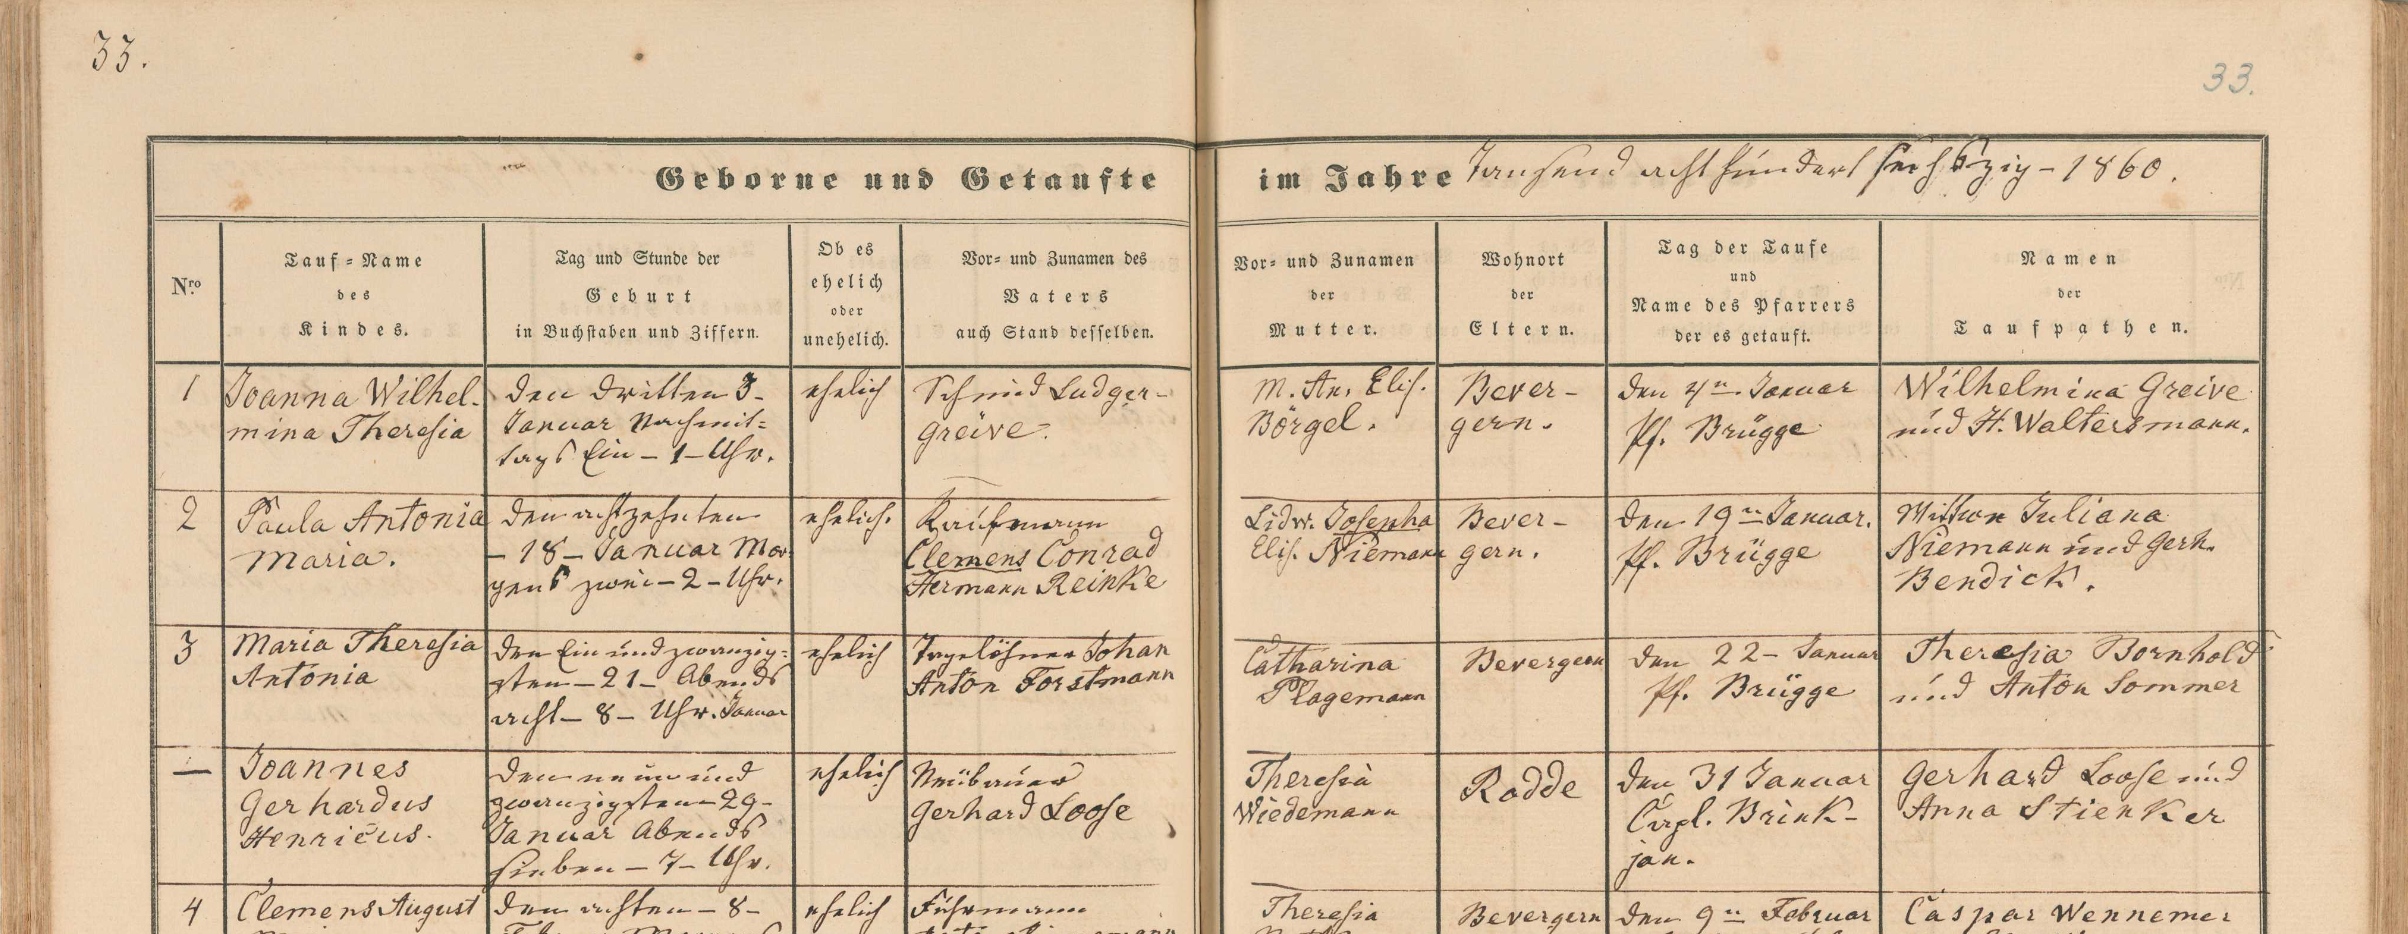 33.
33.
Geborne und Getaufte im Jahre Tausend acht hundert sechszig - 1860.
Nro
Tauf-Name
des
Kindes.
Tag und Stunde der
Geburt
in Buchstaben und Ziffern.
Ob es
ehelich
oder
unehelich.
Vor- und Zunamen des
Vaters
auch Stand desselben.
Vor- und Zunamen
der
Mutter.
Wohnort
der
Eltern.
Tag der Taufe
und
Name des Pfarrers
der es getauft.
Namen
der
Taufpathen.
1
Joanna Wilhel-
mina Theresia
den dritten 3-
Januar Nachmit-
tags Ein - 1 - Uhr.
ehelich
Schmid Ludger
Greive.
M. An. Elis.
Börgel.
Bever-
gern.
den 4n Januar
Pf. Brügge
Wilhelmina Greive
und H. Waltersmann.
2
Paula Antonia
Maria.
den achtzehnten
- 18 - Januar Mor-
gens zwei - 2 - Uhr.
ehelich.
Kaufmann
Clemens Conrad
Hermann Reinke
Lidw. Josepha
Elis. Niemann
Bever-
gern.
den 19n Januar.
Pf. Brügge
Wittwe Juliana
Niemann und Gerh.
Bendick.
3
Maria Theresia
Antonia
den Ein und zwanzig-
sten - 21 - Abends
acht - 8 - Uhr. Januar
ehelich
Tagelöhner Johan
Anton Forstmann
Catharina
Plagemann
Bevergern
den 22 - Januar
Pf. Brügge
Theresia Bornhold
und Anton Sommer
—
Joannes
Gerhardus
Henricus.
den neun und
zwanzigsten 29-
Januar Abends
sieben - 7 - Uhr.
ehelich
Neubauer
Gerhard Loose
Theresia
Wiedemann
Rodde
den 31 Januar
Capl. Brink-
jan.
Gerhard Loose und
Anna Stienker
4
Clemens August
den achten - 8 -
ehelich
Fuhrmann
Theresia
Bevergern
den 9n Februar
Caspar Wennemer